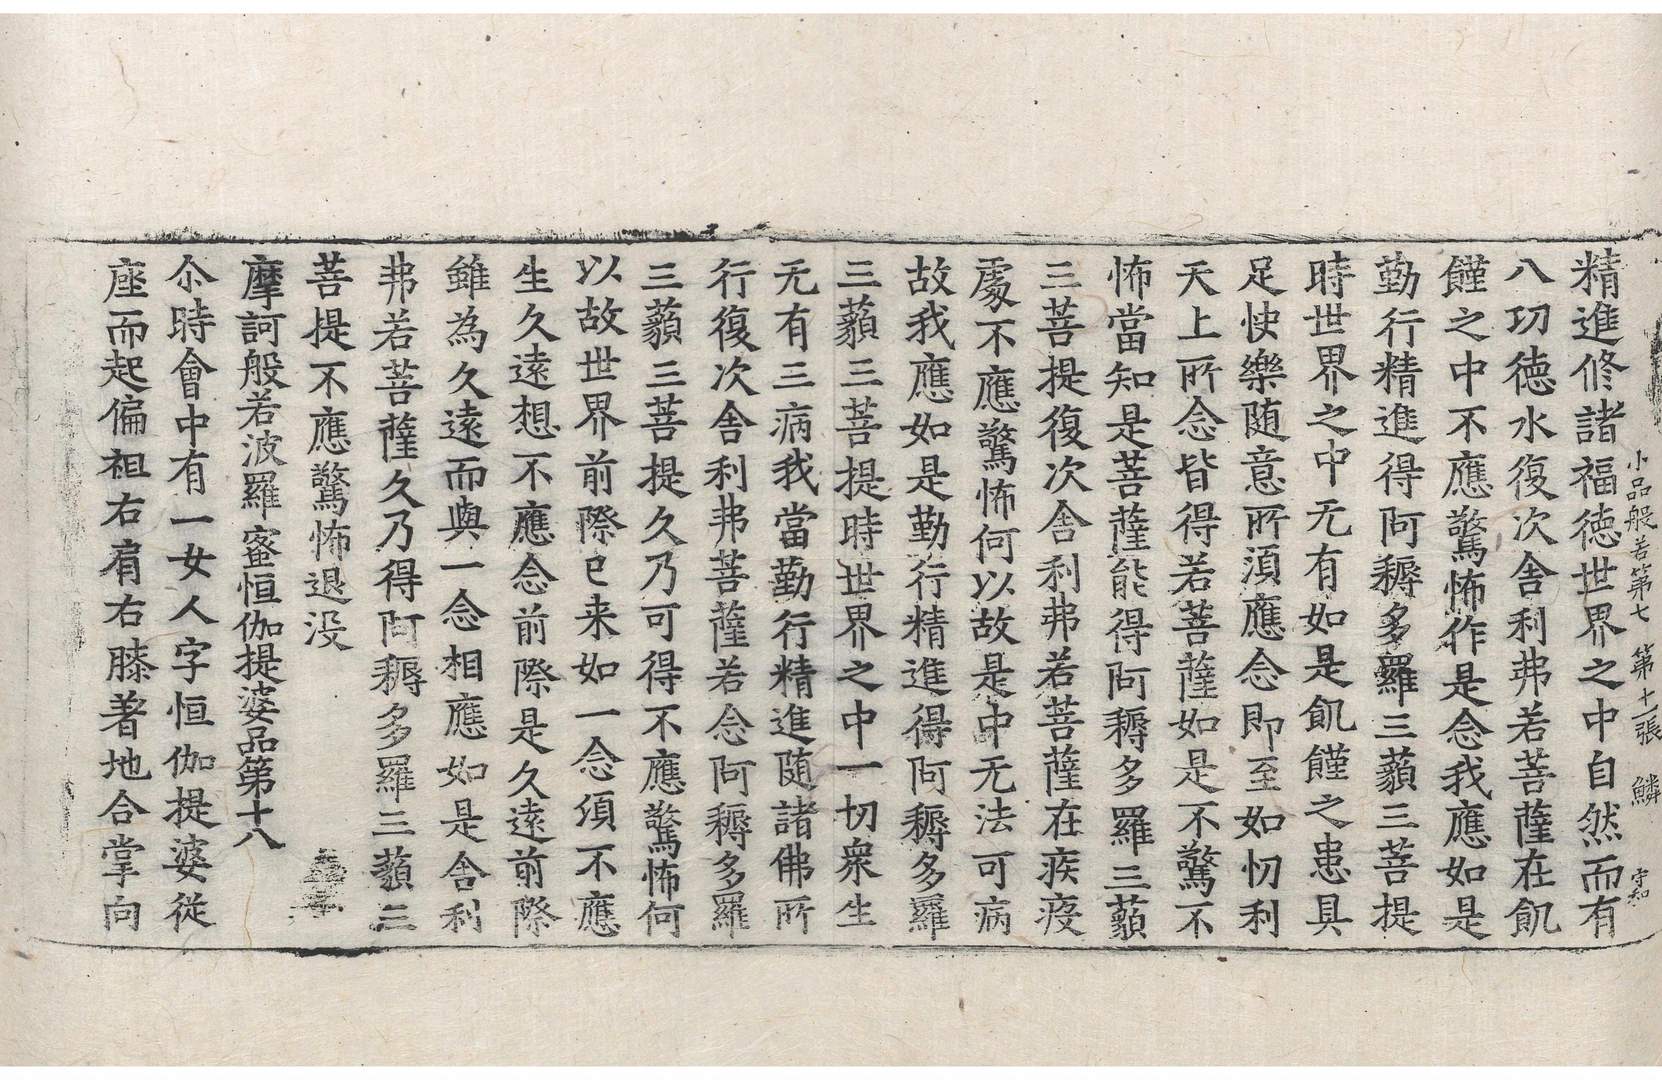 小品般若第七　第十一張　鱗　守和
精進修諸福德世界之中自然而有
八功德水復次舍利弗若菩薩在飢
饉之中不應驚怖作是念我應如是
勤行精進得阿耨多羅三藐三菩提
時世界之中无有如是飢饉之患具
足快樂随意所須應念即至如忉利
天上所念皆得若菩薩如是不驚不
怖當知是菩薩能得阿耨多羅三藐
三菩提復次舍利弗若菩薩在疾疫
處不應驚怖何以故是中无法可病
故我應如是勤行精進得阿耨多羅
三藐三菩提時世界之中一切衆生
无有三病我當勤行精進随諸佛所
行復次舍利弗菩薩若念阿耨多羅
三藐三菩提久乃可得不應驚怖何
以故世界前際已来如一念須不應
生久遠想不應念前際是久遠前際
雖為久遠而與一念相應如是舍利
弗若菩薩久乃得阿耨多羅三藐三
菩提不應驚怖退没
摩訶般若波羅蜜恒伽提婆品第十八
尒時會中有一女人字恒伽提婆從
座而起偏袒右肩右膝著地合掌向